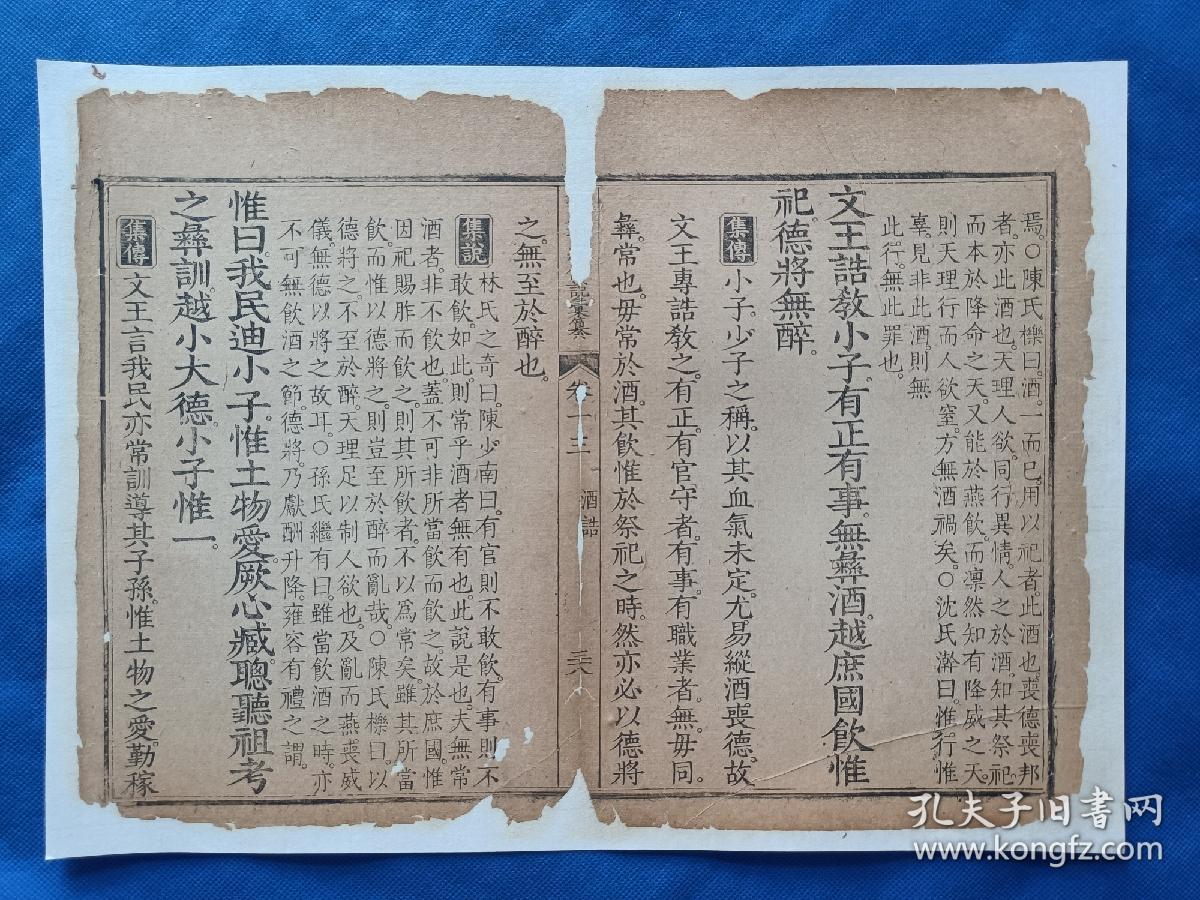 焉。○陳氏櫟曰。酒。一而已。用以祀者。此酒也。喪德喪邦
者。亦此酒也。天理人欲。同行異情。人之於酒。知其祭祀
而本於降命之天。又能於燕飲。而凛然知有降威之天。
則天理行而人欲窒。方無酒禍矣。○沈氏澣曰。惟行。惟
辜。見非此酒。則無
此行。無此罪也。
文王誥教小子有正有事。無彝酒。越庶國飲惟
祀。德將無醉。
集傳 小子。少子之稱。以其血氣未定。尤易縱酒喪德。故
文王專誥教之。有正。有官守者。有事。有職業者。無。毋同。
彝。常也。毋常於酒。其飲惟於祭祀之時。然亦必以德將
卷十三 酒誥
之。無至於醉也。
集說 林氏之奇曰。陳少南曰。有官則不敢飲。有事則不
敢飲。如此。則常乎酒者無有也。此說是也。夫無常
酒者。非不飲也。蓋不可非所當飲而飲之。故於庶國。惟
因祀賜胙而飲之。則其所飲者。不以爲常矣。雖其所當
飲。而惟以德將之。則豈至於醉而亂哉。○陳氏櫟曰。以
德將之。不至於醉。天理足以制人欲也。及亂而燕喪威
儀。無德以將之故耳。○孫氏繼有曰。雖當飲酒之時。亦
不可無飲酒之節。德將。乃獻酬升降。雍容有禮之謂。
惟曰。我民迪小子。惟土物愛。厥心臧。聰聽祖考
之彝訓。越小大德。小子惟一。
集傳 文王言我民亦常訓導其子孫。惟土物之愛。勤稼
孔夫子旧书网
www.kongfz.com